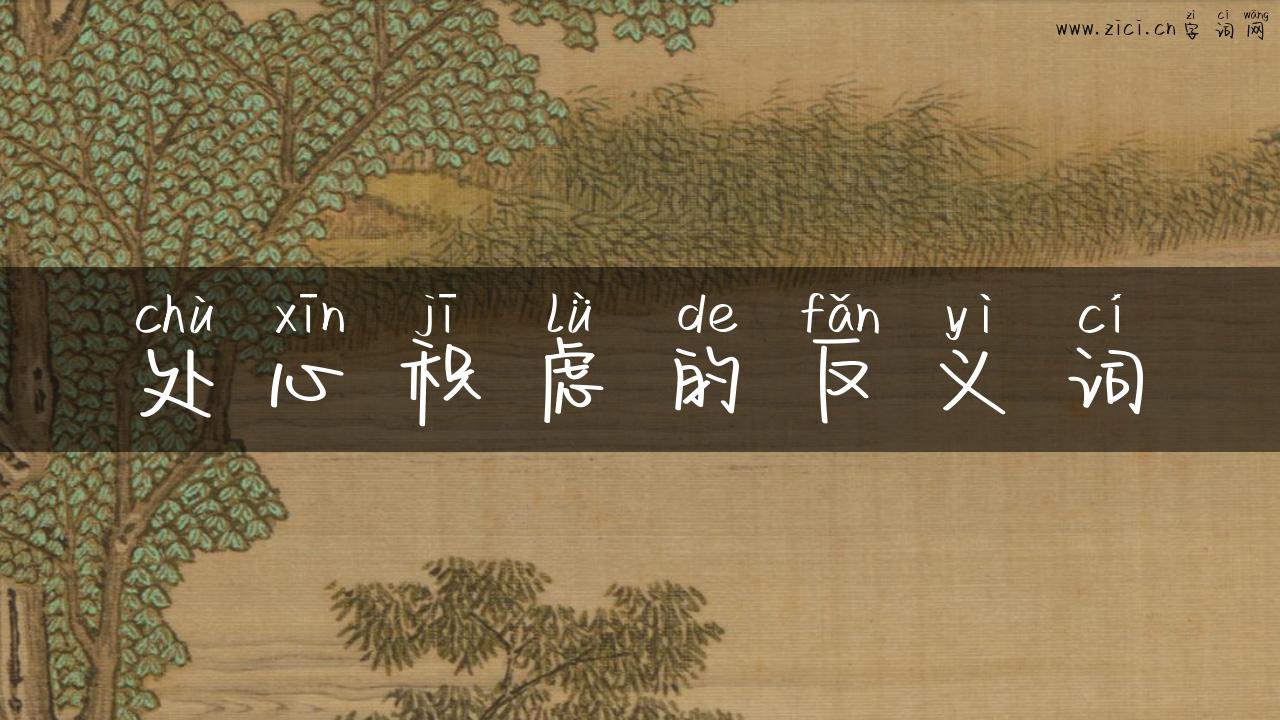 zì cí wǎng
www.zici.cn字词网
chù xīn jī lǜ de fǎn yì cí
处心积虑的反义词